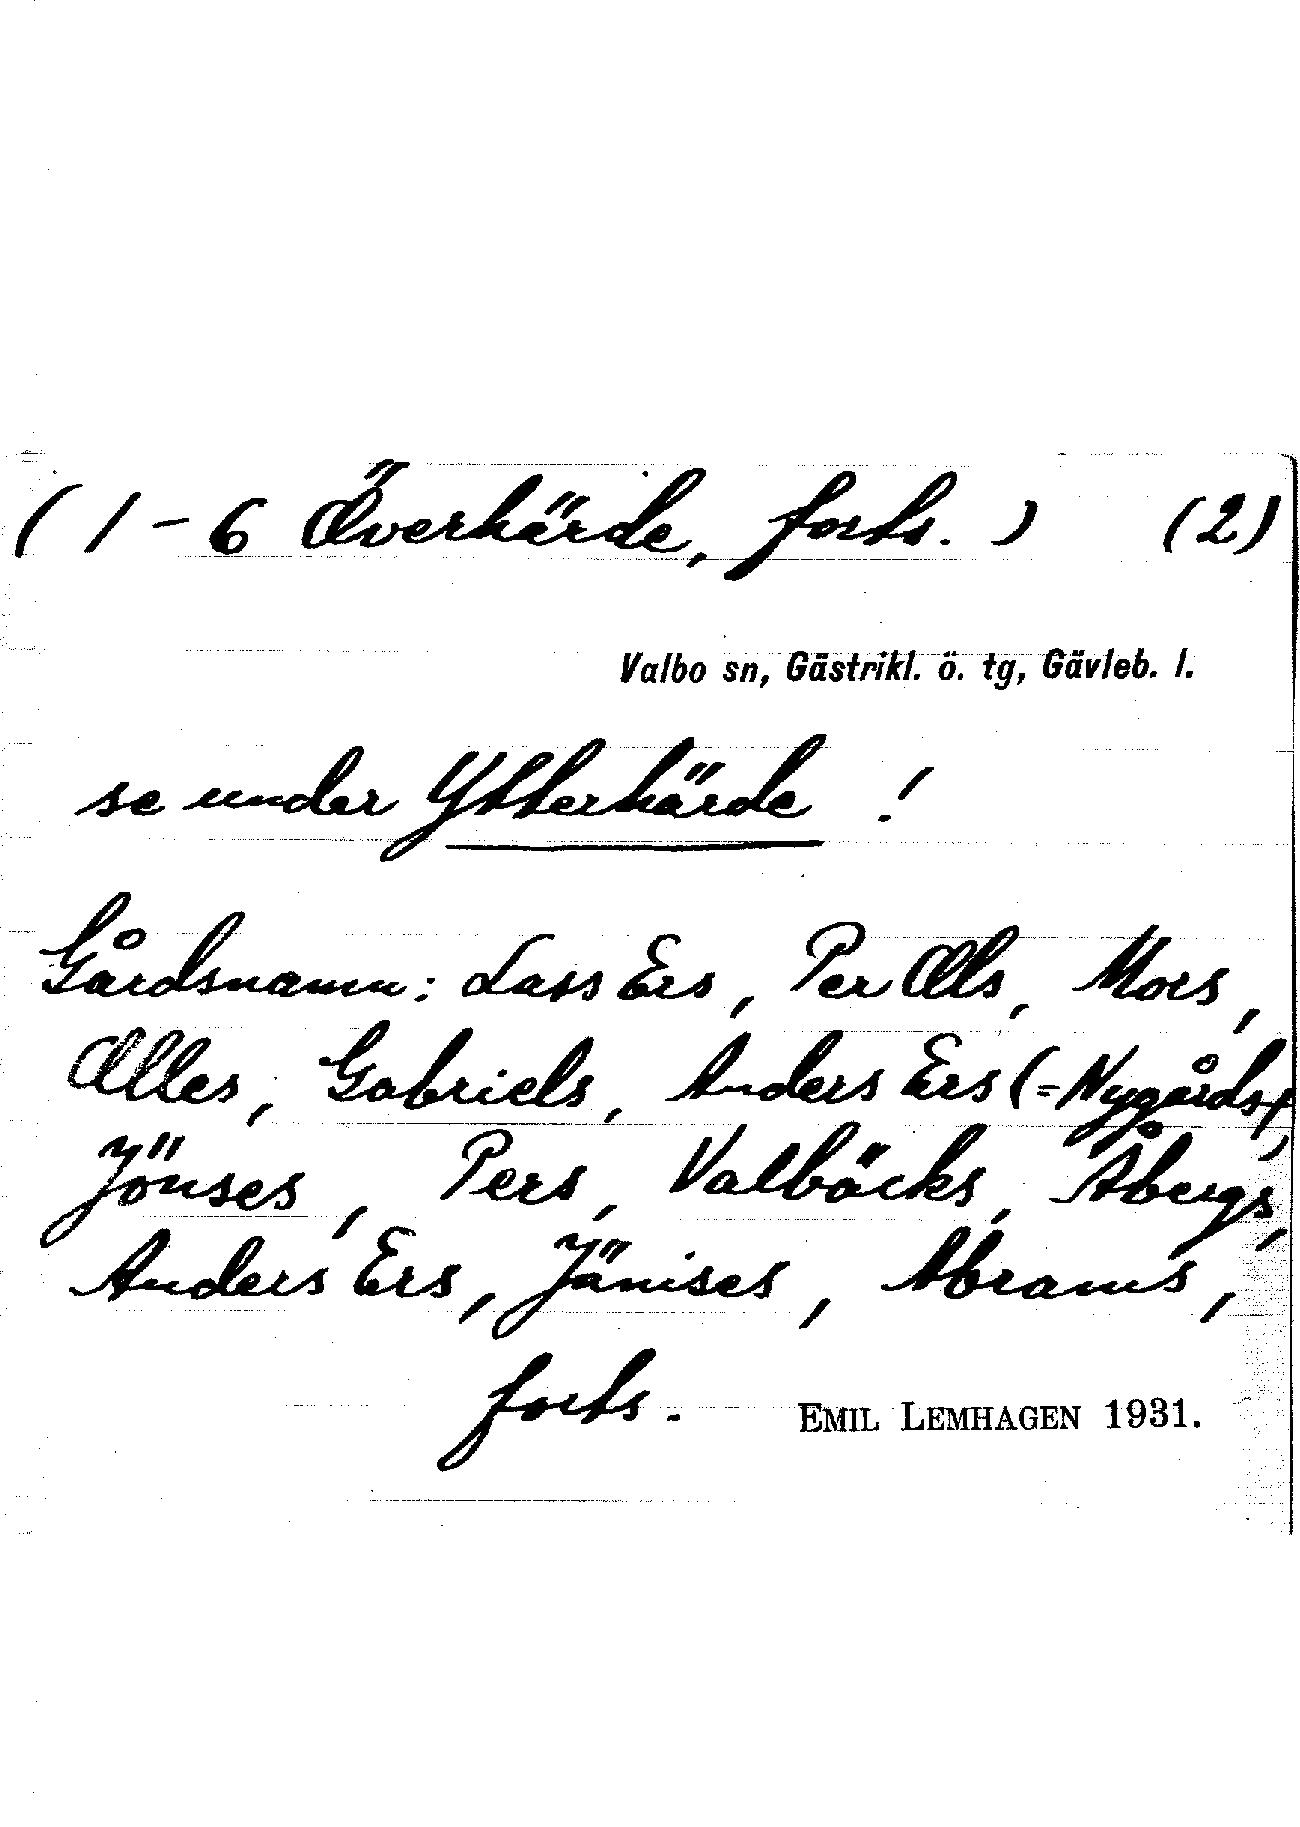 (1-6 Överhärde, forts.) (2)
Valbo sn, Gästrikl. ö. tg, Gävleb. l.
se under Ytterhärde !
Gårdsnamn: Lass Ers, Per Ols, Mors,
Olles, Gabriels, Anders Ers (=Nygårds),
Jönses, Pers, Valbäcks, Åbergs,
Anders Ers, Jänises, Abrams,
forts.
EMIL LEMHAGEN 1931.